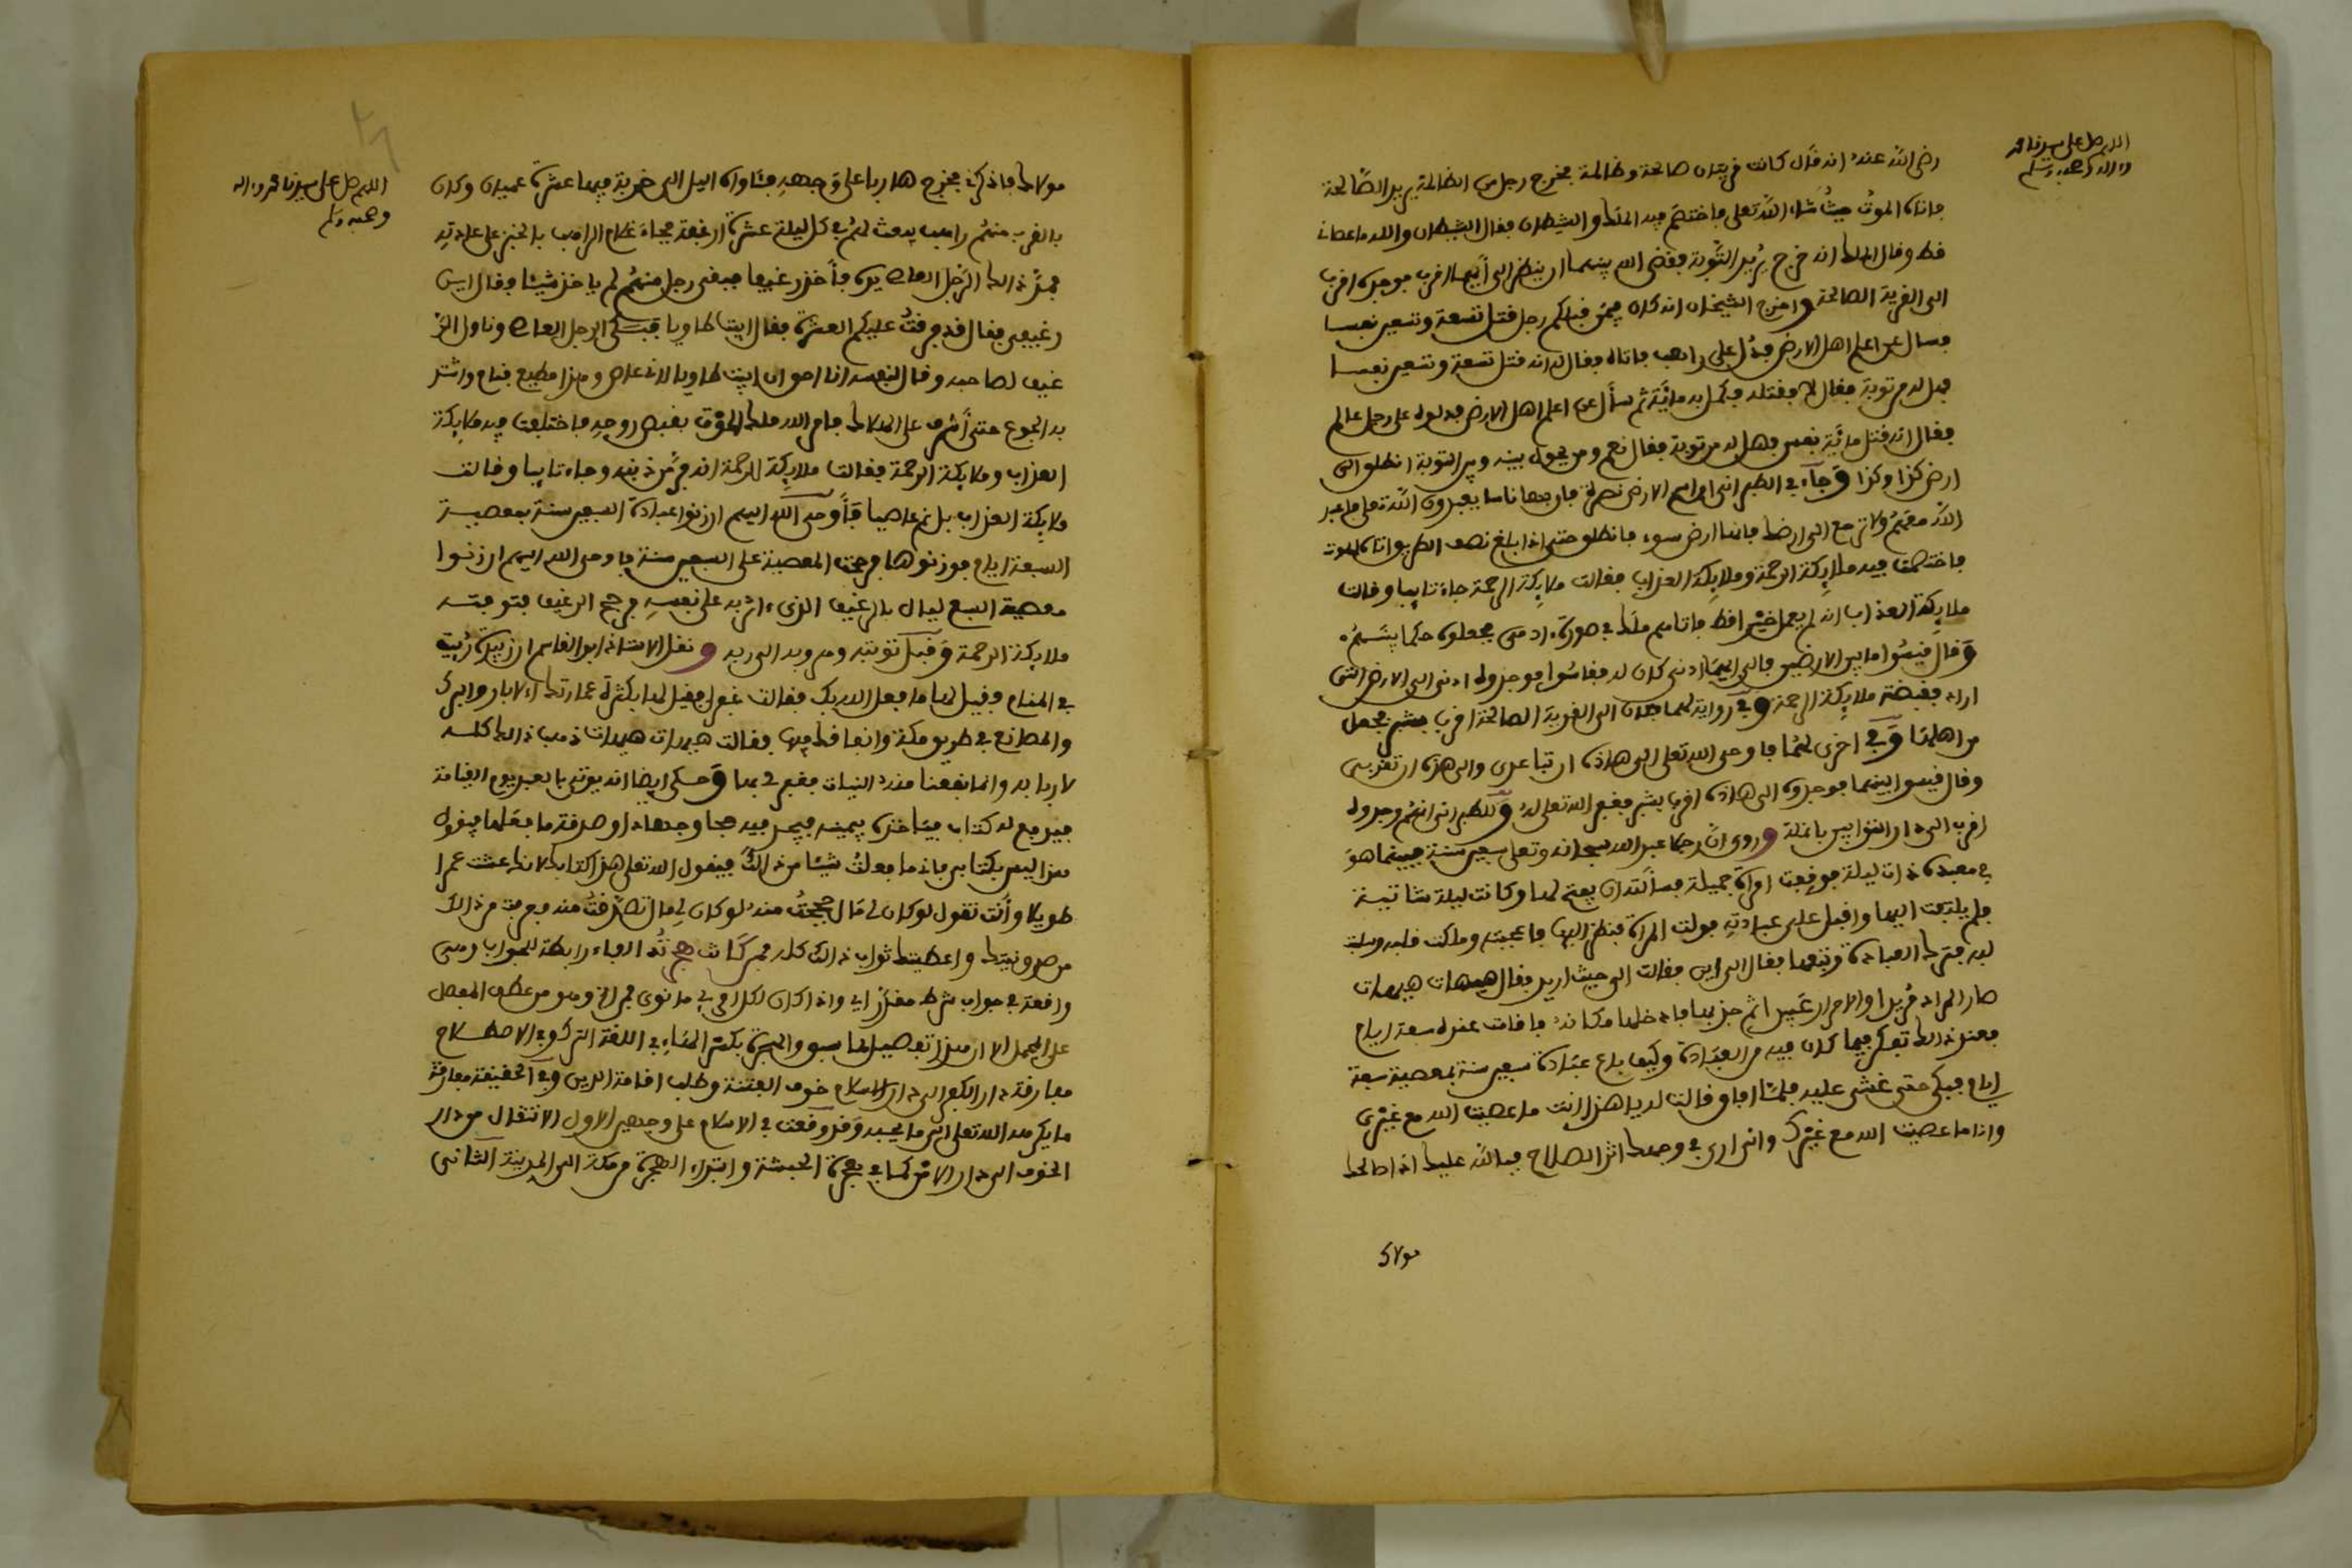 اللهم صل على سيدنا محمد
وءاله وصحبه وسلم
رضي الله عنه انه قال كانت قريتان صالحة وظالمة فخرج رجل من الظالمة يريد الصالحة
فاتاه الموت حيث شاء الله تعلى فاختصم فيه الملك والشيطان فقال الشيطان والله ما عصانى
قط وقال الملك انه خرج يريد التوبة فقضى الله بينهما ان ينظر الى أيهما اقرب فوجدوه اقرب
الى القرية الصالحة واخرج الشيخان انه كان فيمن قبلكم رجل قتل تسعة وتسعين نفسا
فسال عن اعلم اهل الارض فدل على راهب فاتاه فقال له انه قتل تسعة وتسعين نفسا
فهل له من توبة فقال لا فقتله فكمل به مائة ثم سأل عن اعلم اهل الارض فدلوه على رجل عالم
فقال انه قتل مائة نفس فهل له من توبة فقال نعم ومن يحول بينه وبين التوبة انطلق الى
ارض كذا وكذا وجاء في الطبرانى اسم الارض نصرة فان بها ناسا يعبدون الله تعلى فاعبد
الله معهم ولا ترجع الى ارضك فانها ارض سوء فانطلق حتى اذا بلغ نصف الطريق اتاه الموت
فاختصمت فيه ملايكة الرحمة وملايكة العذاب فقالت ملايكة الرحمة جاء تايبا وقالت
ملايكة العذاب انه لم يعمل خيرا قط فاتاهم ملك في صورة ءادمى فجعلوه حكما بينهم
وقال قيسوا ما بين الارضين فالى ايهما ادنى كان له فقاسوا فوجدوه ادنى الى الارض التى
اراد فقبضته ملايكة الرحمة وفي رواية لهما فكان الى القرية الصالحة اقرب بشبر فجعل
من اهلها وفي اخرى لهما فاوحى الله تعلى الى هاذه ان تباعدى والى هذه ان تقربى
وقال قيسوا بينهما فوجدوه الى هاذه اقرب بشبر فغفر الله تعلى له وللطبرانى انهم وجدوه
اقرب الى دار التوابين بانملة وروى ان رجلا عبد الله سبحانه وتعلى سبعين سنة فبينما هو
في معبده ذات ليلة فوقفت امراة جميلة فسألته ان يفتح لها وكانت ليلة شاتية
فلم يلتفت اليها واقبل على عبادته فولت المراة فنظر اليها فاعجبته وملكت قلبه وسلبت
لبه فترك العبادة وتبعها فقال الى اين فقالت الى حيث اريد فقال هيهات هيهات
صار المراد مريدا والاحرار عبيدا ثم جذبها فادخلها مكانه فاقامت عنده سبعة ايام
فعند ذالك تفكر فيما كان فيه من العبادة وكيف باع عبادة سبعين سنة بمعصية سبعة
ايام فبكى حتى غشى عليه فلما افاق قالت له يا هذا انت ما عصيت الله مع غيرى
وانا ما عصيت الله مع غيرك وانى ارى في وجهك اثر الصلاح فبالله عليك اذا صالحك
مولاك
اللهم صل على سيدنا محمد وءاله
وصحبه وسلم
مولاك فاذكرنى فخرج هاربا على وجهه فئاواه اليل الى خربة فيها عشرة عميان وكان
بالقرب منهم راهب يبعث لهم في كل ليلة عشرة ارغفة فجاء غلام الراهب بالخبز على عادته
فمد ذالك الرجل العاصي يده فأخذ رغيفا فبقى رجل منهم لم ياخذ شيئا وقال اين
رغيفى فقال قد فرقت عليكم العشرة فقال ابيت طاويا فبكى الرجل العاصي وناول الر
غيف لصاحبه وقال لنفسه انا احق ان ابيت طاويا لانى عاص وهذا مطيع فنام واشتد
به الجوع حتى أشرف على الهلاك فامر الله ملك الموت بقبض روحه فاختلفت فيه ملايكة
العذاب وملايكة الرحمة فقالت ملايكة الرحمة انه فر من ذنبه وجاء تايبا وقالت
ملايكة العذاب بل هو عاصيا فأوحى الله اليهم ان زنوا عبادة السبعين سنة بمعصية
السبعة ايام فوزنوها فرجحت المعصية على السبعين سنة فاوحى الله اليهم ان زنوا
معصية السبع ليال بالرغيف الذى ءاثر به على نفسه فرجح الرغيف فتوفته
ملايكة الرحمة وقبل توبته ومروبه الى ربه ونقل الاستاذ ابو القاسم ان زبيدة رئيت
في المنام وقيل لها ما فعل الله بك فقالت غفر لى فقيل لها بكثرة عمارتك الابار والبرك
والمصانع في طريق مكة وانفاقك فيها فقالت هيهات هيهات ذهب ذالك كله
لاربابه وانما نفعنا منه النيات فغفر لى بها وحكى ايضا انه يوتى بالعبد يوم القيامة
فيدفع له كتاب فياخذه بيمينه فيجد فيه حجا وجهادا وصدقة ما فعلها فيقول
هذا ليس بكتابى فانى ما فعلت شيئا من ذالك فيقول الله تعلى هذا كتابك لانك عشت عمرا
طويلا وأنت تقول لو كان لى مال حججت منه لو كان لى مال تصدقت منه فعرفت من ذالك
من صدق نيتك واعطيتك ثواب ذالك كله فمن كانت هجرته الفاء رابطة للجواب وهى
واقعة في جواب شرط مقدر اى واذا كان لكل امرئ ما نوى فمن الخ وهو من عطف المفصل
على المجمل الا ان هذا تفصيل لما سبق والهجرة بكسر الهاء في اللغة الترك وفي الاصطلاح
مفارقة دار الكفر الى دار الاسلام خوف الفتنة وطلب اقامة الدين وفي الحقيقة مفارقة
ما يكرهه الله تعلى الى ما يحبه وقد وقعت في الاسلام على وجهين الاول الانتقال من دار
الخوف الى دار الامن كما في هجرة الحبشة وابتداء الهجرة من مكة الى المدينة الثانى